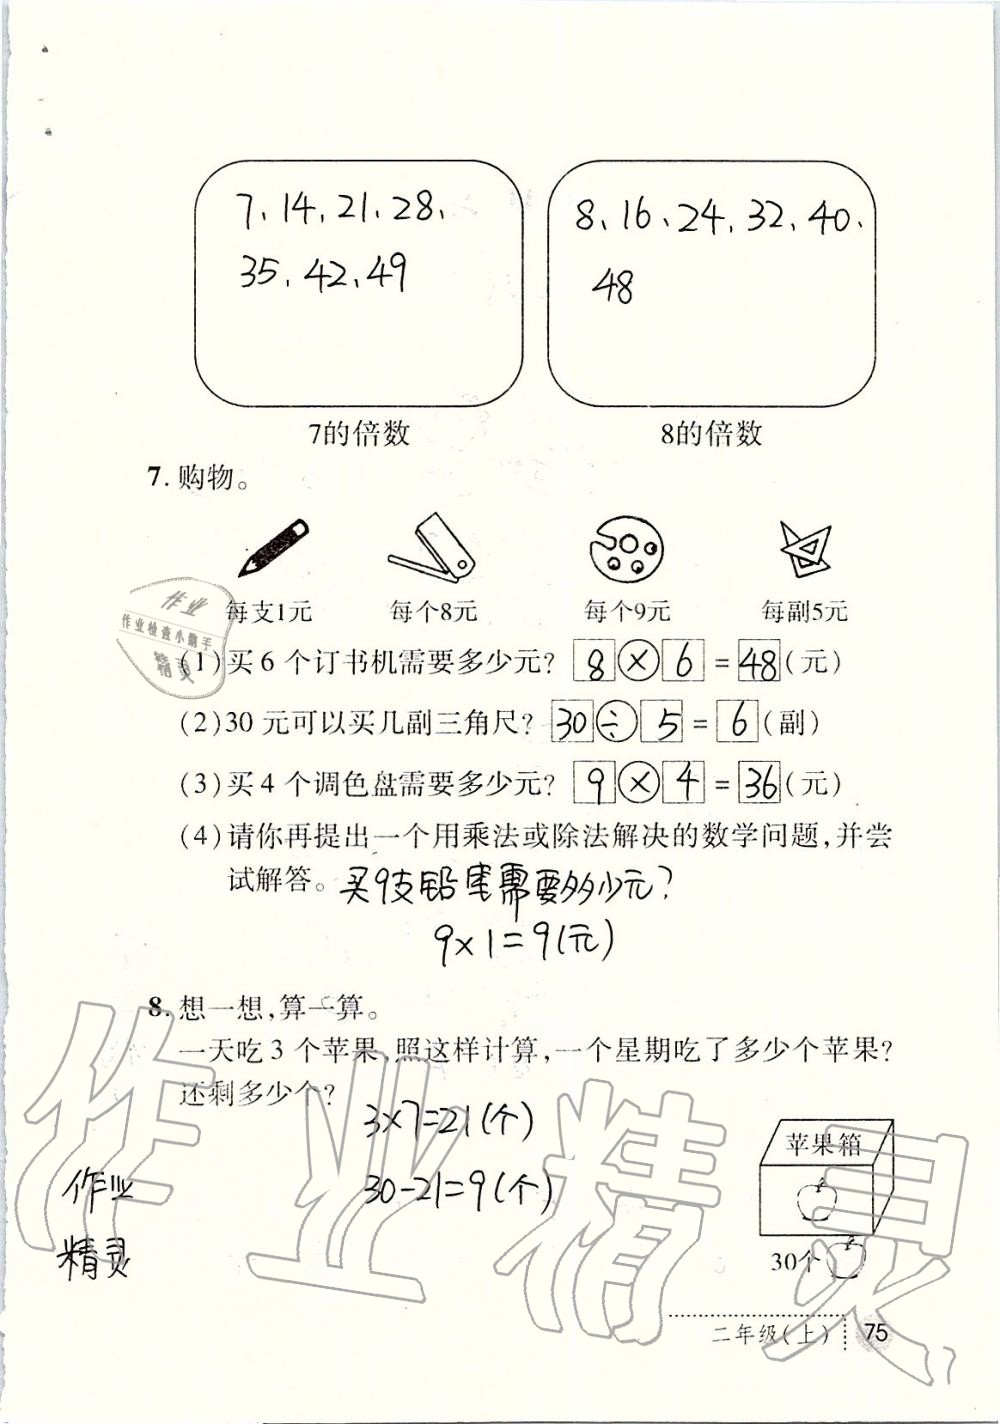 7、14、21、28、 8、16、24、32、40、
35、42、49 48
7的倍数 8的倍数
7. 购物。
每支1元 每个8元 每个9元 每副5元
作业
作业检查小助手
精灵
(1)买 6 个订书机需要多少元? 8 × 6 = 48 (元)
(2)30 元可以买几副三角尺? 30 ÷ 5 = 6 (副)
(3)买 4 个调色盘需要多少元? 9 × 4 = 36 (元)
(4)请你再提出一个用乘法或除法解决的数学问题,并尝
试解答。买9支铅笔需要多少元?
9×1=9(元)
8. 想一想,算一算。
一天吃 3 个苹果,照这样计算,一个星期吃了多少个苹果?
还剩多少个?
3×7=21(个)
苹果箱
作业 30-21=9(个)
精灵
30个
二年级(上) 75
作业精灵